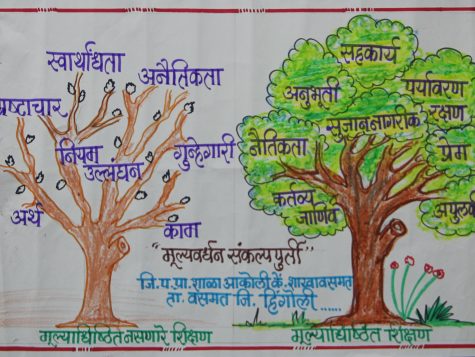 स्वार्थांधता
अनैतिकता
भ्रष्टाचार
नियम
उल्लंघन
गुन्हेगारी
अर्थ
काम
सहकार्य
अनुभूती
पर्यावरण
रक्षण
सुजाननागरीक
नैतिकता
प्रेम
कर्तव्य
जाणिव
"मूल्यवर्धन संकल्पपुर्ती"
जि.प.प्रा.शाळा आकोली कें.शाखावसमत
ता. वसमत जि. हिंगोली ......
मूल्याधिष्ठित नसणारे शिक्षण
मूल्याधिष्ठित शिक्षण